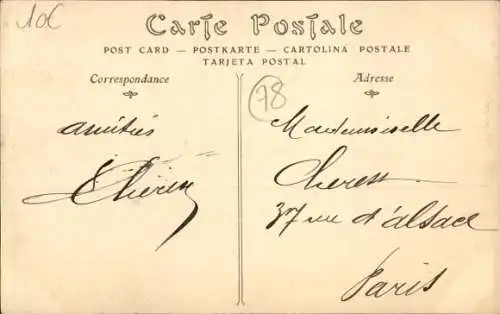 10€
Carte Postale
POST CARD — POSTKARTE — CARTOLINA POSTALE
TARJETA POSTAL
Correspondance
Adresse
78
amitiés
Mademoiselle
37 rue d'alsace
Paris